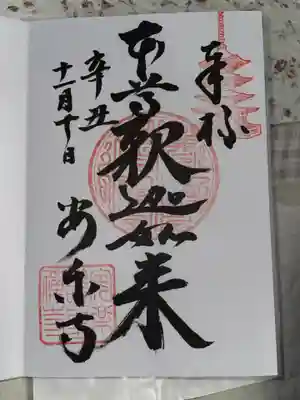 奉拝
本尊釈迦如来
辛丑
十二月十日
安乐寺